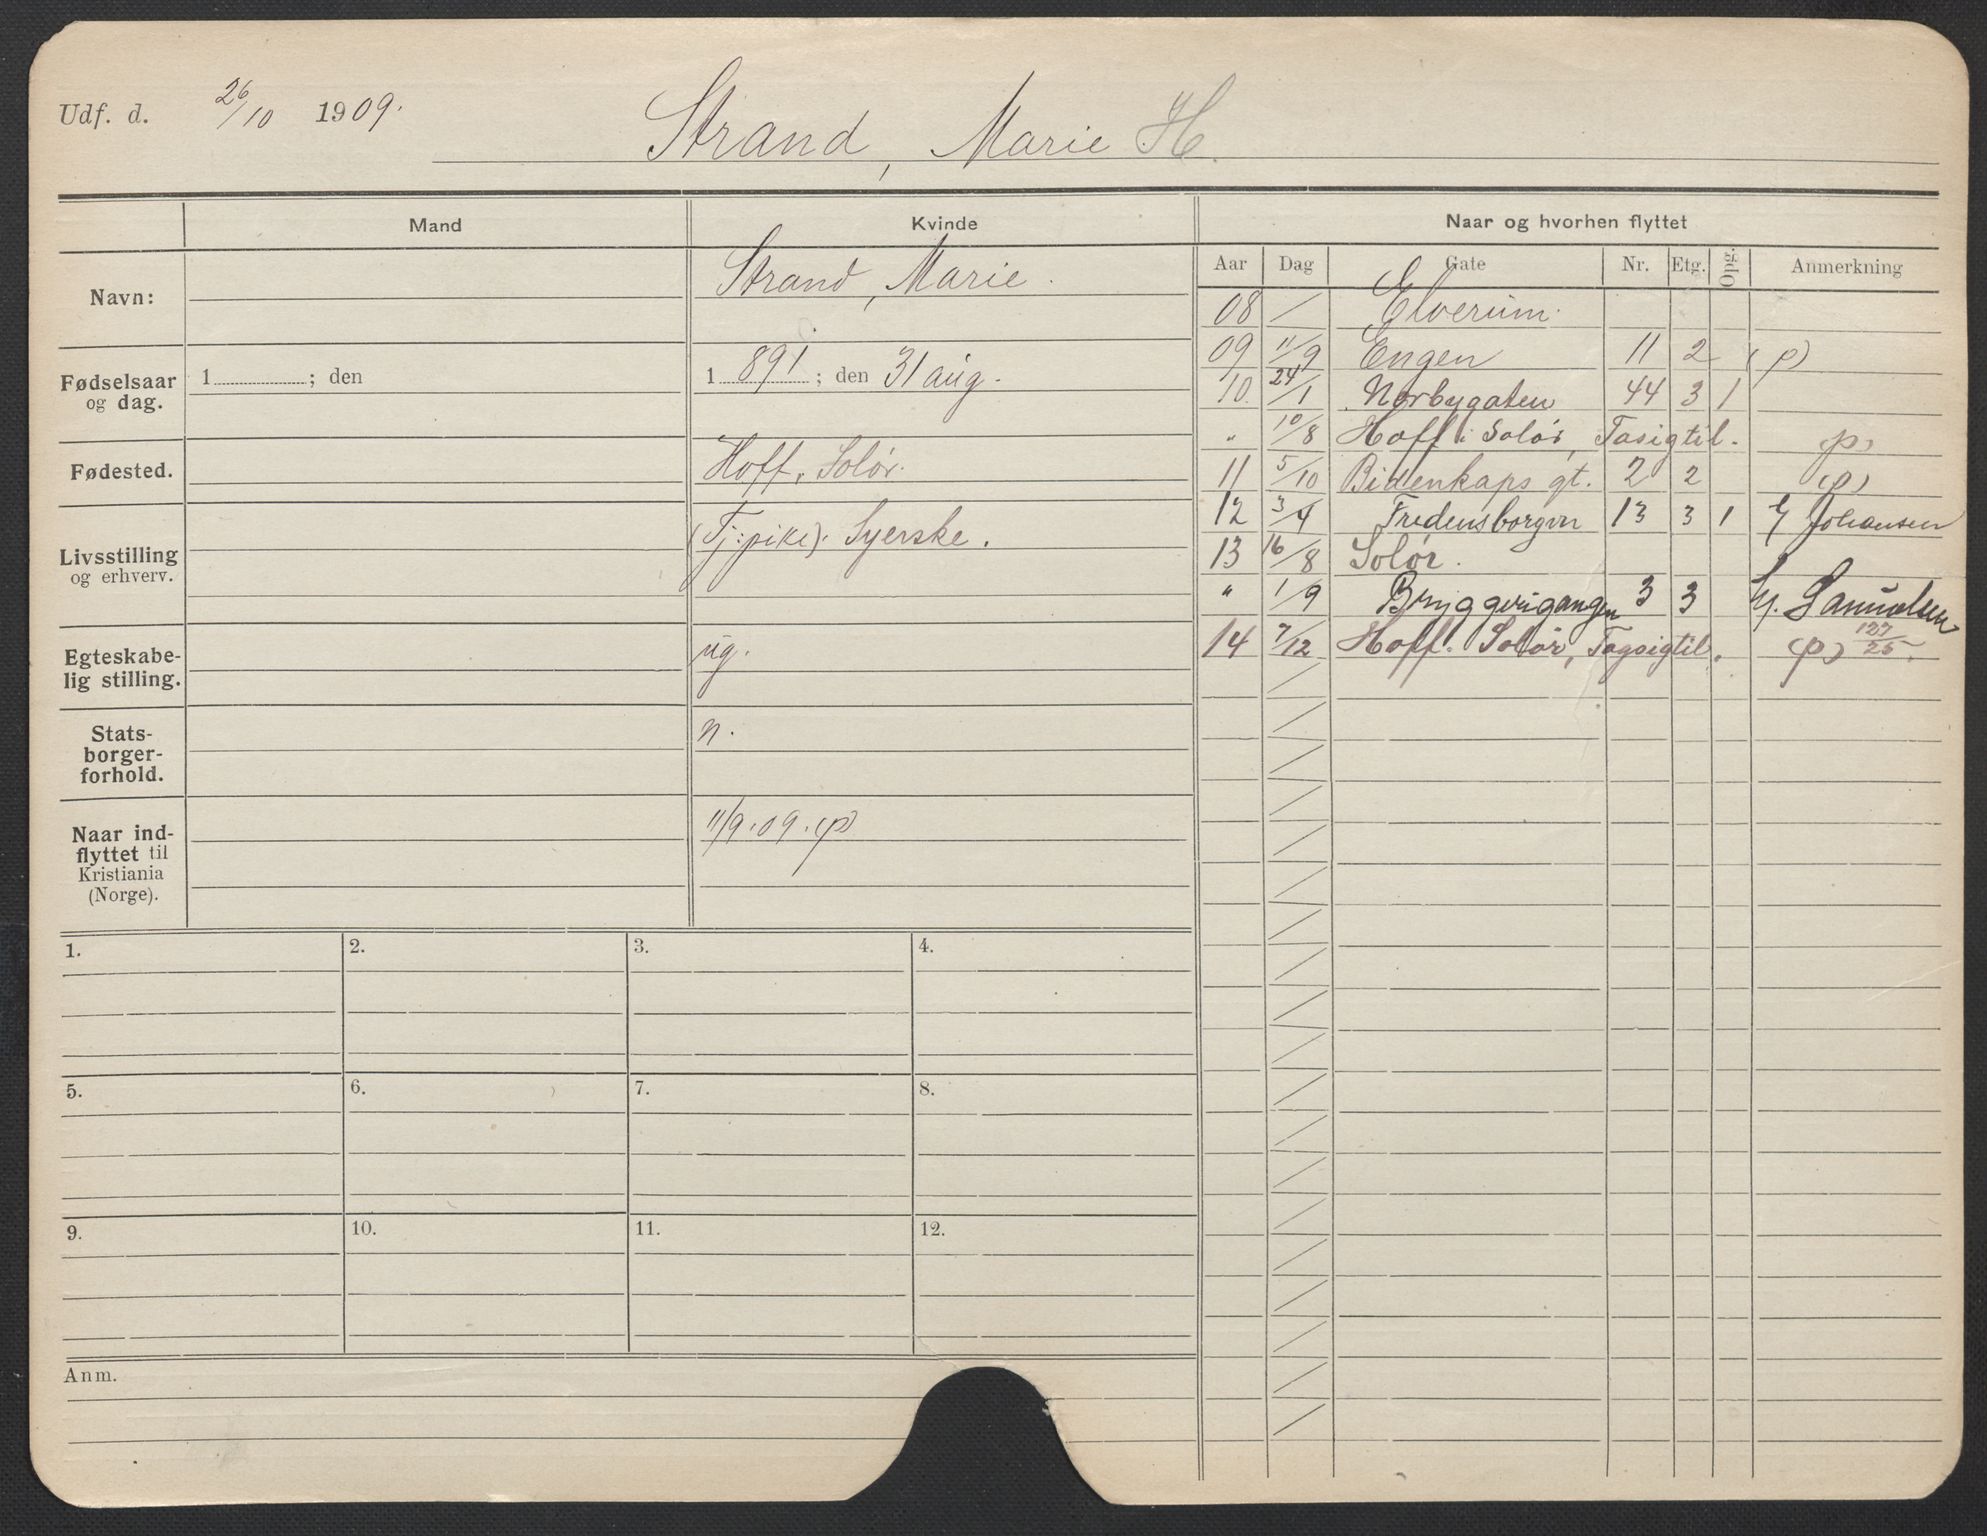 Udf. d. 26/10 1909.
Strand, Marie H.
Mand
Kvinde
Naar og hvorhen flyttet
Aar Dag Gate Nr. Etg. Opg. Anmerkning
Navn:
Strand, Marie.
Fødselsaar og dag.
1 ; den
1 891 ; den 31 aug.
Fødested.
Hoff, Solør.
Livsstilling og erhverv.
(Tj:pike). Syerske.
Egteskabe-
lig stilling.
ug.
Stats-
borger-
forhold.
n.
Naar ind-
flyttet til
Kristiania
(Norge).
11/9.09.(p)
08 / Elverum.
09 11/9 Engen 11 2 (p)
10. 24/1 Norbygaten 44 3 1
" 10/8 Hoff i Solør, Tosigtil. (p)
11 5/10 Bidenkaps gt. 2 2 (p)
12 3/4 Fredensborgvn 13 3 1 Johansen
13 16/8 Solør.
" 1/9 Bryggerigangen 3 3 Samuelsen
14 7/12 Hoff. Solør, Togsigtil. (p) 127/25.
1.
2.
3.
4.
5.
6.
7.
8.
9.
10.
11.
12.
Anm.